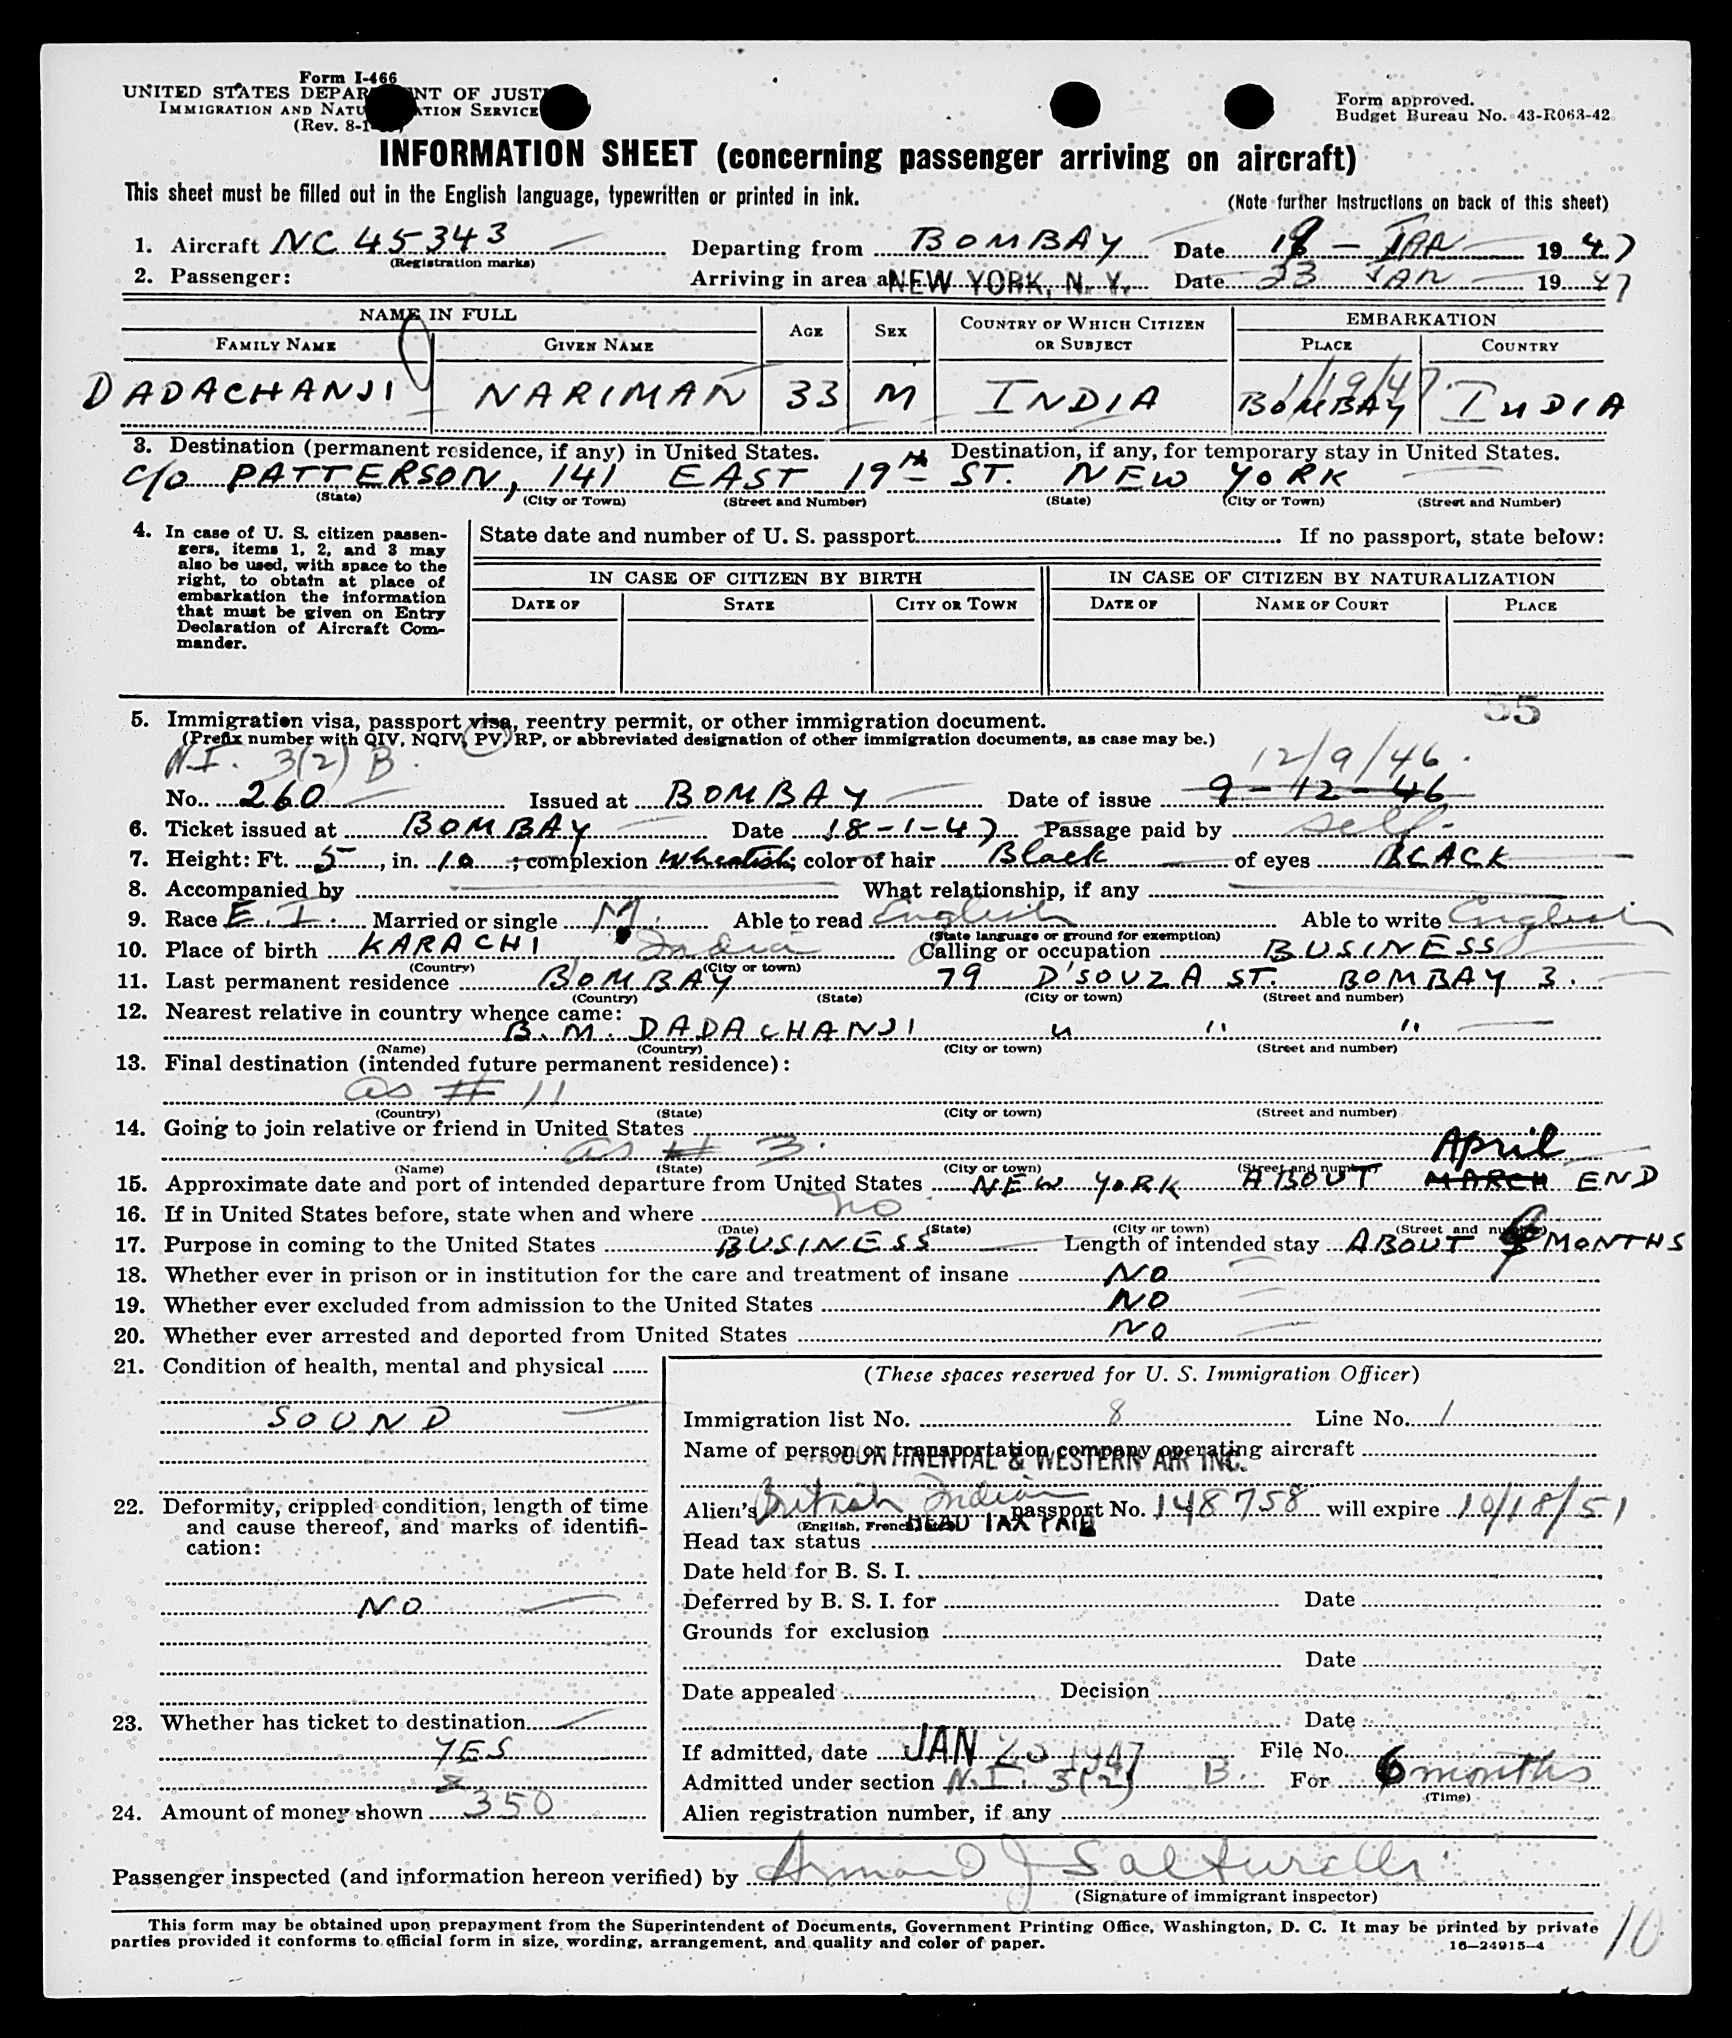 Form I-466
UNITED STATES DEPARTMENT OF JUSTICE
IMMIGRATION AND NATURALIZATION SERVICE
(Rev. 8-1-
Form approved.
Budget Bureau No. 43-R063-42
INFORMATION SHEET (concerning passenger arriving on aircraft)
This sheet must be filled out in the English language, typewritten or printed in ink.
(Note further instructions on back of this sheet)
1. Aircraft NC 45343 Departing from BOMBAY Date 18 - JAN 1947
(Registration marks)
2. Passenger: Arriving in area at NEW YORK, N. Y. Date 23 JAN 1947
NAME IN FULL AGE SEX COUNTRY OF WHICH CITIZEN OR SUBJECT EMBARKATION
FAMILY NAME GIVEN NAME PLACE COUNTRY
1/19/47
DADACHANJI NARIMAN 33 M INDIA BOMBAY INDIA
3. Destination (permanent residence, if any) in United States. Destination, if any, for temporary stay in United States.
c/o PATTERSON, 141 EAST 19TH ST. NEW YORK
(State) (City or Town) (Street and Number) (State) (City or Town) (Street and Number)
4. In case of U. S. citizen passengers, items 1, 2, and 3 may also be used, with space to the right, to obtain at place of embarkation the information that must be given on Entry Declaration of Aircraft Commander.
State date and number of U. S. passport If no passport, state below:
IN CASE OF CITIZEN BY BIRTH IN CASE OF CITIZEN BY NATURALIZATION
DATE OF STATE CITY OR TOWN DATE OF NAME OF COURT PLACE
55
5. Immigration visa, passport visa, reentry permit, or other immigration document.
(Prefix number with QIV, NQIV, PV, RP, or abbreviated designation of other immigration documents, as case may be.)
N.I. 3(2) B. 12/9/46.
No. 260 Issued at BOMBAY Date of issue 9-12-46
6. Ticket issued at BOMBAY Date 18-1-47 Passage paid by self
7. Height: Ft. 5, in. 10; complexion Wheatish; color of hair Black of eyes BLACK
8. Accompanied by What relationship, if any
9. Race E. I. Married or single M. Able to read English Able to write English
(State language or ground for exemption)
10. Place of birth KARACHI India Calling or occupation BUSINESS
(Country) (City or town)
11. Last permanent residence BOMBAY 79 D'SOUZA ST. BOMBAY 3.
(Country) (State) (City or town) (Street and number)
12. Nearest relative in country whence came:
B. M. DADACHANJI " " "
(Name) (Country) (City or town) (Street and number)
13. Final destination (intended future permanent residence):
as # 11
(Country) (State) (City or town) (Street and number)
14. Going to join relative or friend in United States
as # 3.
(Name) (State) (City or town) (Street and number)
April
15. Approximate date and port of intended departure from United States NEW YORK ABOUT MARCH END
16. If in United States before, state when and where no
(Date) (State) (City or town) (Street and number)
17. Purpose in coming to the United States BUSINESS Length of intended stay ABOUT MONTHS
18. Whether ever in prison or in institution for the care and treatment of insane NO
19. Whether ever excluded from admission to the United States NO
20. Whether ever arrested and deported from United States NO
21. Condition of health, mental and physical
SOUND
22. Deformity, crippled condition, length of time and cause thereof, and marks of identification:
NO
23. Whether has ticket to destination
YES
24. Amount of money shown 350
(These spaces reserved for U. S. Immigration Officer)
Immigration list No. 8 Line No. 1
Name of person or transportation company operating aircraft
CONTINENTAL & WESTERN AIR INC.
Alien's British Indian passport No. 148758 will expire 10/18/51
(English, French,
HEAD TAX PAID
Head tax status
Date held for B. S. I.
Deferred by B. S. I. for Date
Grounds for exclusion
Date
Date appealed Decision
Date
If admitted, date JAN 23 1947 File No.
Admitted under section N.I. 3(2) B. For 6 months
(Time)
Alien registration number, if any
Passenger inspected (and information hereon verified) by Armand J Salturelli
(Signature of immigrant inspector)
This form may be obtained upon prepayment from the Superintendent of Documents, Government Printing Office, Washington, D. C. It may be printed by private
parties provided it conforms to official form in size, wording, arrangement, and quality and color of paper.
16—24915-4
10